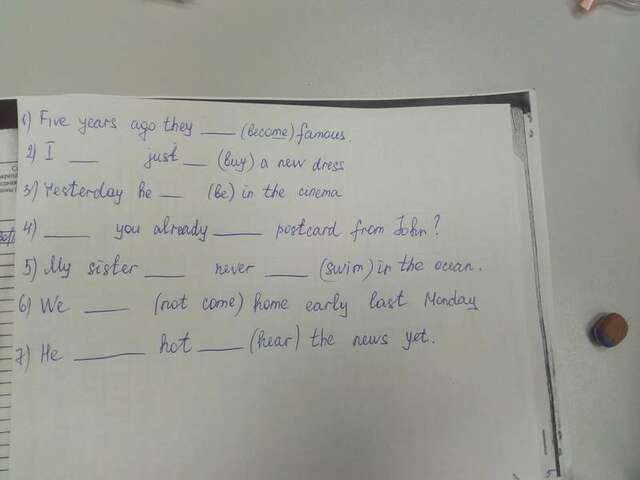 1) Five years ago they ___ (become) famous.
2) I ___ just ___ (buy) a new dress
3) Yesterday he ___ (be) in the cinema
4) ____ you already ____ postcard from John?
5) My sister ____ never ____ (swim) in the ocean.
6) We ____ (not come) home early last Monday
7) He ______ hot ____ (hear) the news yet.
5